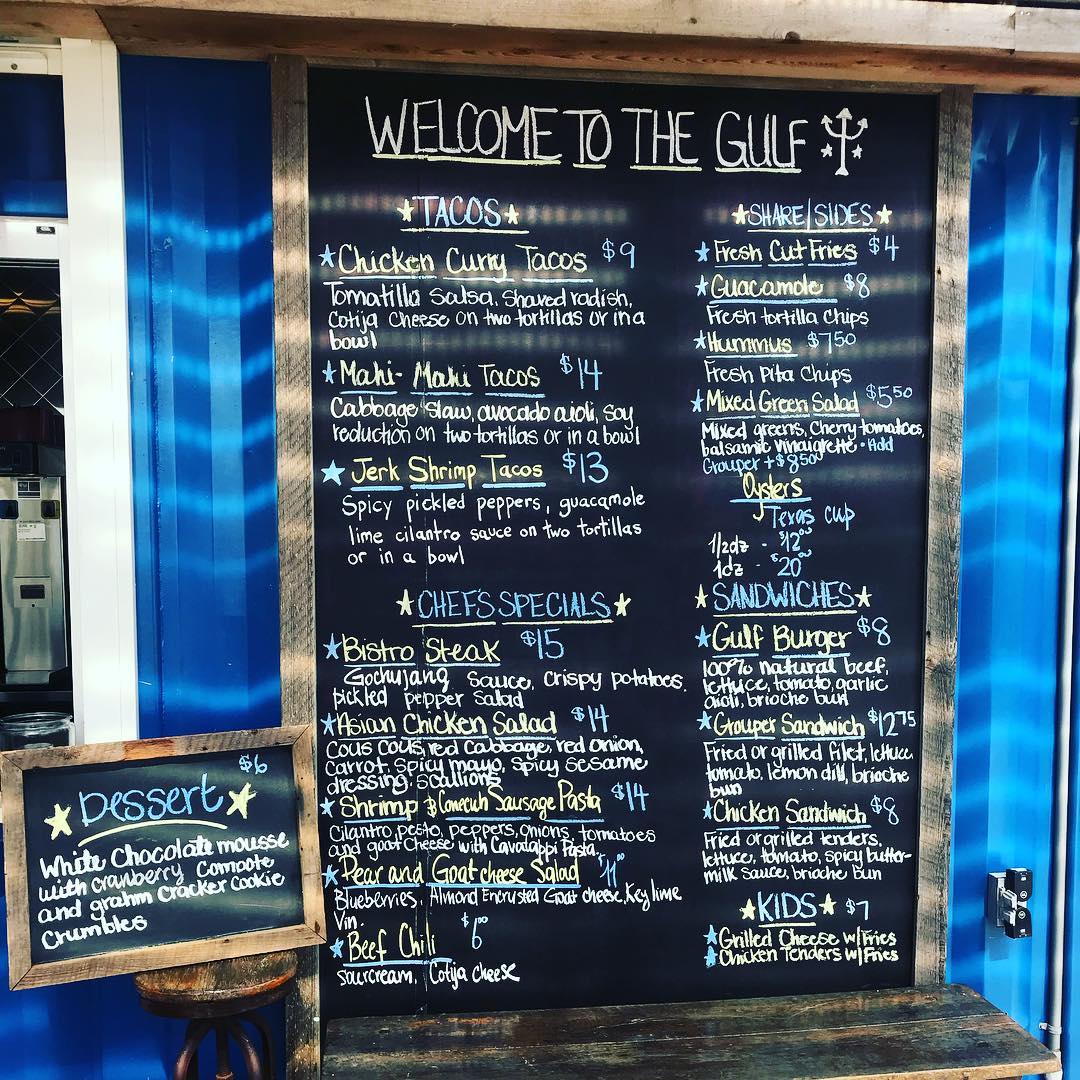 WELCOME TO THE GULF
TACOS
Chicken Curry Tacos $9
Tomatilla Salsa, Shaved radish,
Cotija Cheese on two tortillas or in a
bowl
Mahi-Mahi Tacos $14
Cabbage slaw, avocado aioli, soy
reduction on two tortillas or in a bowl
Jerk Shrimp Tacos $13
Spicy pickled peppers, guacamole
lime cilantro sauce on two tortillas
or in a bowl
CHEF'S SPECIALS
Bistro Steak $15
Gochujang sauce, crispy potatoes,
pickled pepper salad
Asian Chicken Salad $14
Cous cous, red cabbage, red onion,
carrot, spicy mayo, spicy sesame
dressing, scallions
Shrimp & Conecuh Sausage Pasta $14
Cilantro, pesto, peppers, onions, tomatoes
and goat cheese with Cavatappi Pasta.
Pear and Goat cheese Salad $11.00
Blueberries, Almond Encrusted Goat cheese, Key lime
Vin.
Beef Chili $6.00
sourcream, Cotija cheese
SHARE/SIDES
Fresh Cut Fries $4
Guacamole $8
Fresh tortilla Chips
Hummus $7.50
Fresh Pita Chips
Mixed Green Salad $5.50
Mixed greens, Cherry tomatoes,
balsamic vinaigrette • Add
Grouper +$8.50
Oysters
Texas cup
1/2dz - $12.00
1dz - $20.00
SANDWICHES
Gulf Burger $8
100% natural beef,
lettuce, tomato, garlic
aioli, brioche bun
Grouper Sandwich $12.75
Fried or grilled filet, lettuce
tomato, lemon dill, brioche
bun
Chicken Sandwich $8
Fried or grilled tenders,
lettuce, tomato, spicy butter-
milk sauce, brioche bun
KIDS $7
Grilled Cheese w/Fries
Chicken Tenders w/Fries
$6
Dessert
White Chocolate mousse
with cranberry Compote
and grahm Cracker Cookie
Crumbles